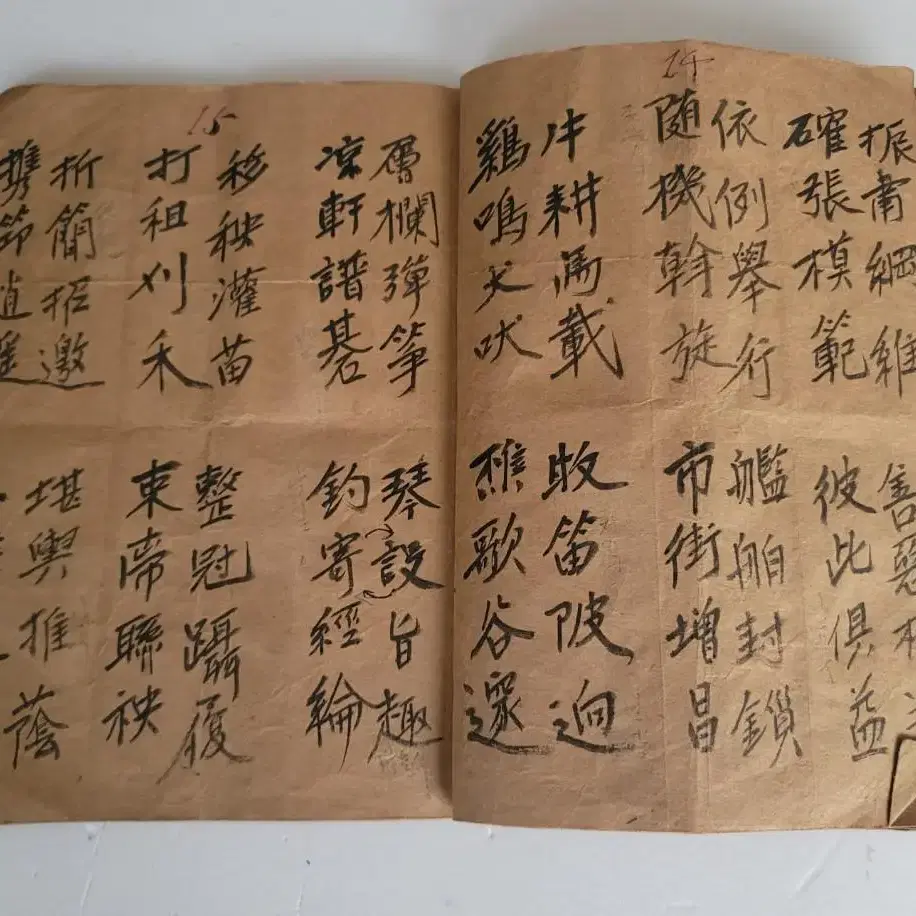 14
振肅綱維
確張模範
依例舉行
隨機斡旋
牛耕馬載
鷄鳴犬吠
善惡相
彼此俱益
艦舶封鎖
市街增昌
牧笛陂逈
樵歌谷邃
15
層欄彈箏
凉軒譜碁
移秧灌苗
打租刈禾
折簡招邀
携節逍遙
琴設旨趣
釣寄經綸
整冠躡履
束帶聯袂
堪輿推蔭